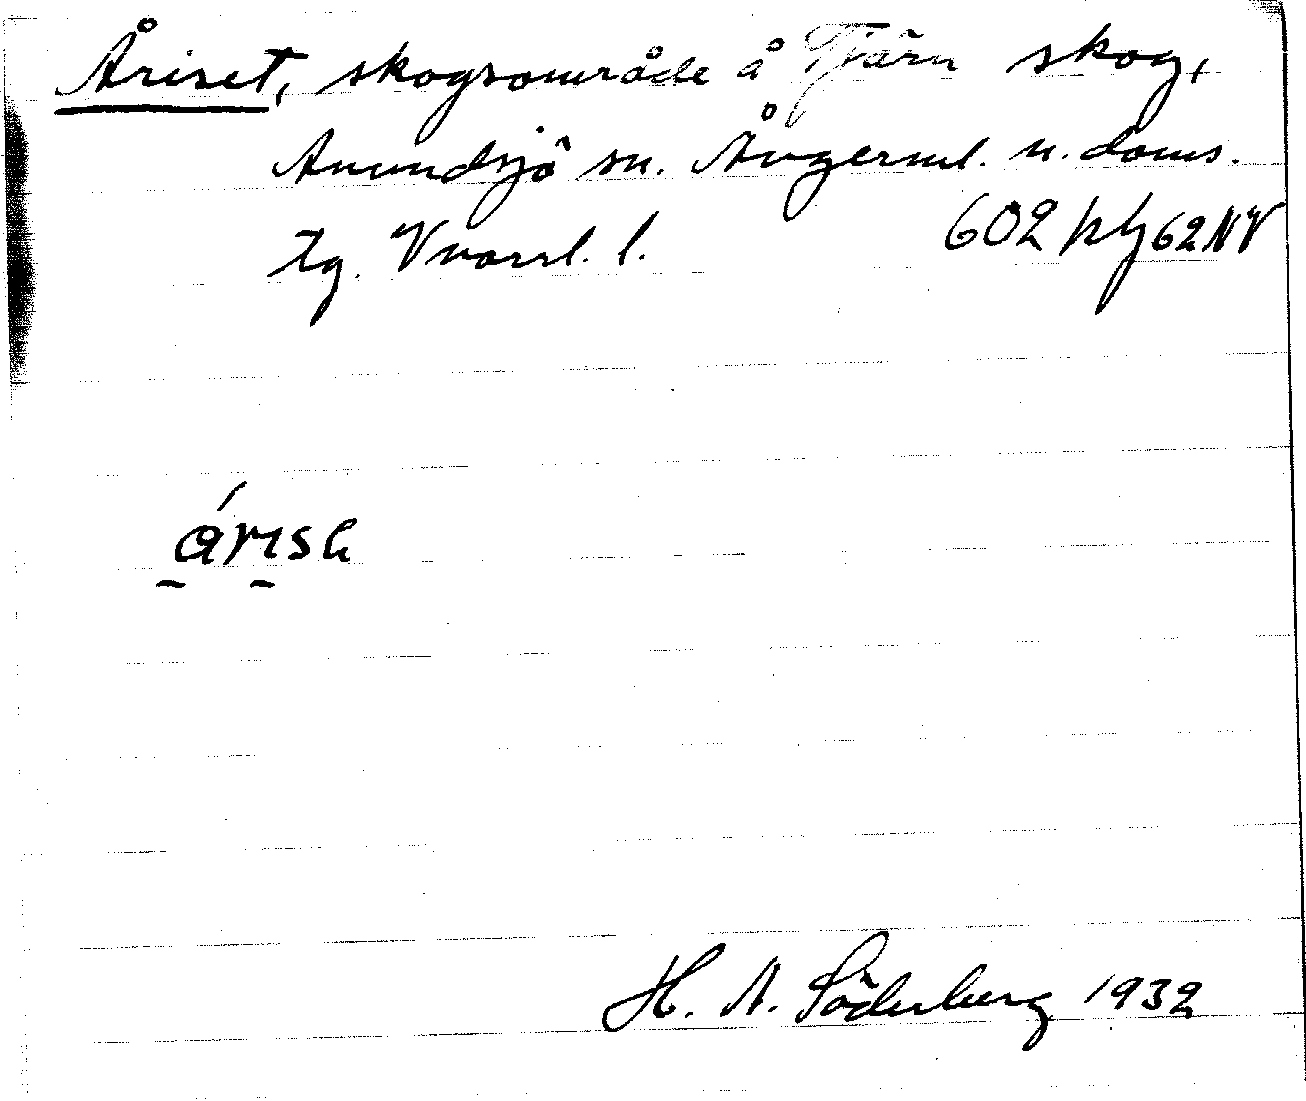 Åriset, skogsområde å Tjärn skog,
Anundsjö sn. Ångerml. n. doms.
tg. Vnorrl. l. 602 62NV
H. A. Söderberg 1932